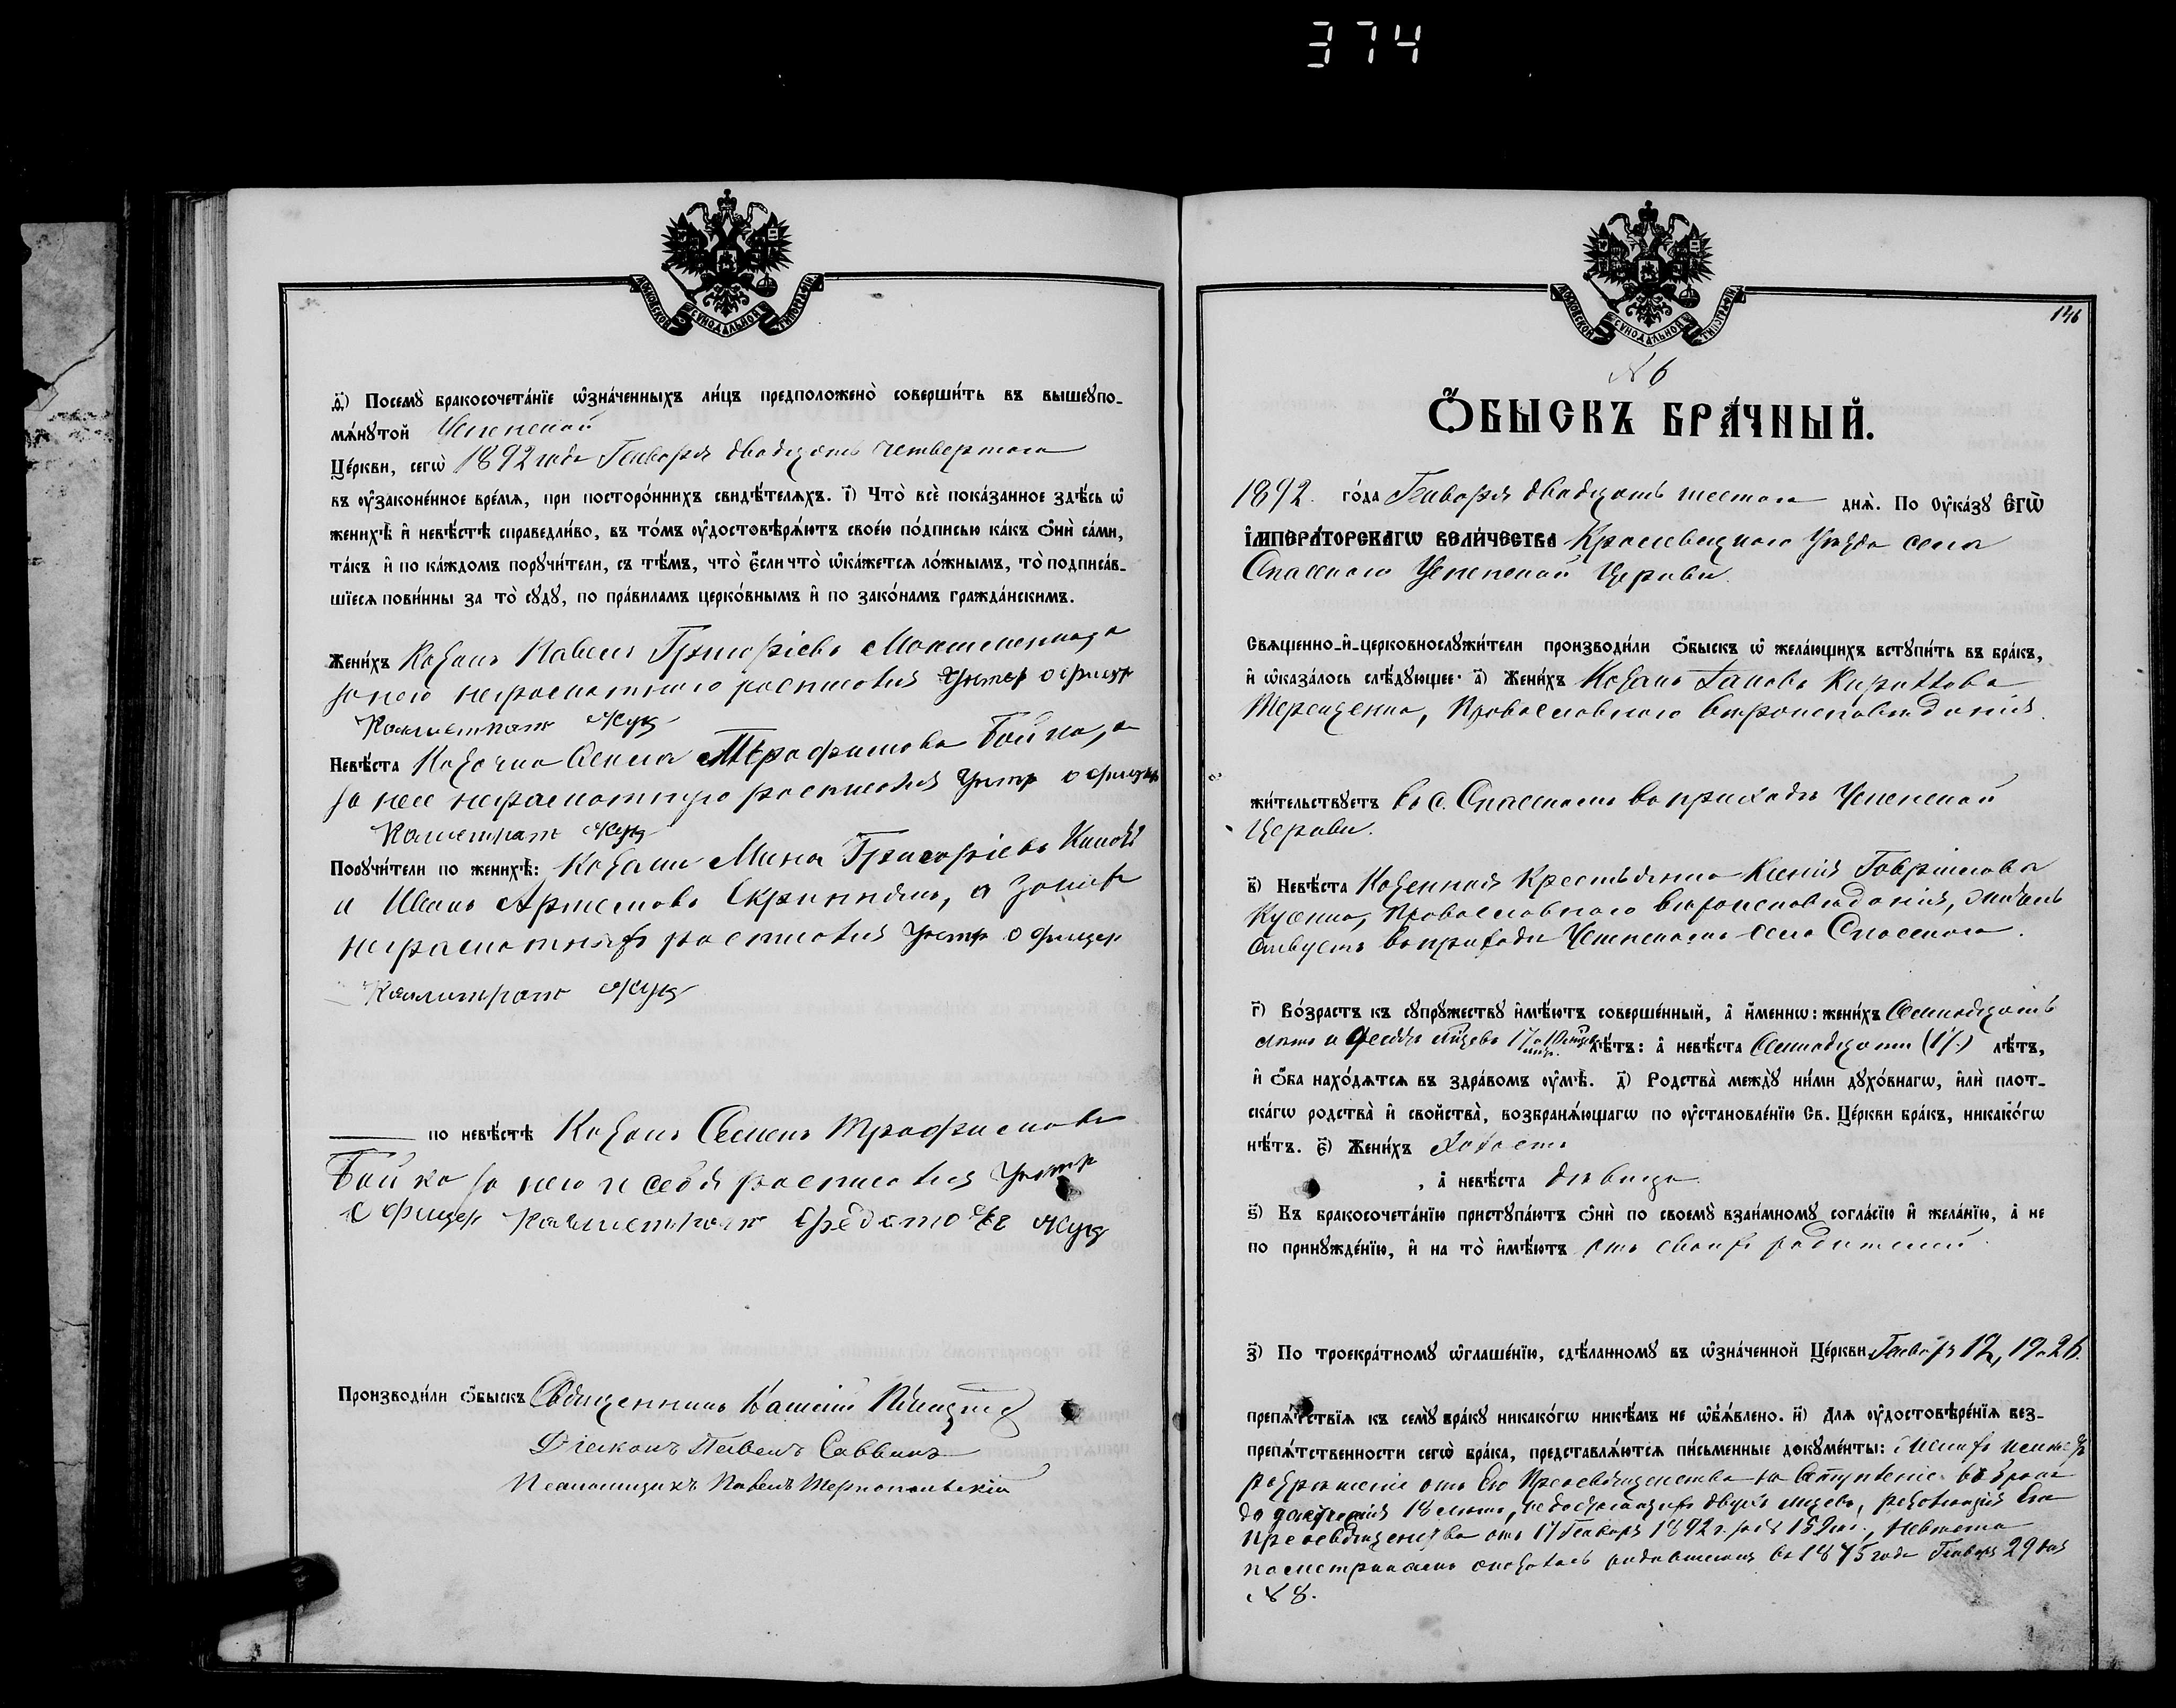 374
МОСКОВСКОЙ СѴНОДАЛЬНОЙ ТИПОГРАФІИ
ѳ҃) Посемꙋ̀ бракосочета́нїе ѡ҆зна́ченныхъ ли́цъ предположено̀ соверши́ть въ вышеꙋпо-
мѧ́нꙋтой Успенской
Це́ркви, сегѡ̀ 1892 года Генваря двадцать четвертаго
въ ᲂу҆законе́нное вре́мѧ, при посторо́ннихъ свидѣ́телѧхъ. і҃) Что̀ всѐ пока́занное здѣ́сь ѡ҆
женихѣ̀ и҆ невѣ́стѣ справедли́во, въ то́мъ ᲂу҆достовѣрѧ́ютъ свое́ю по́дписью ка́къ ѻ҆нѝ са́ми,
та́къ и҆ по ка́ждомъ порꙋчи́тели, съ тѣ́мъ, что̀ є҆́сли что̀ ѡ҆ка́жется ло́жнымъ, то̀ подписа́в-
шїеся пови́нны за то̀ сꙋдꙋ̀, по пра́виламъ церко́внымъ и҆ по зако́намъ гражда́нскимъ.
Жени́хъ Козакъ Павелъ Григоріевъ а
за него неграмотнаго росписался Унтер офицер
Калистрат Жук
Невѣ́ста Козачка Трофимова Бойко, а
за нее неграмотную росписался Унтр офицер
Калистрат Жук
Порꙋчи́тели по женихѣ̀: Козаки Мина Григоріевъ
и Иванъ Артемовъ Скрипкинъ, а за нихъ
неграмотныхъ росписался Унтр офицер
Калистрат Жук
по невѣ́стѣ Козакъ Семенъ Трофимовъ
Бойко за него и себя росписался Унтр
офицер Калистрат Жук
Производи́ли ѻ҆́быскъ Священникъ
Діаконъ Павелъ Саввинъ
Псаломщикъ Павелъ Тернопольскій
МОСКОВСКОЙ СѴНОДАЛЬНОЙ ТИПОГРАФІИ
146
№ 6
Ѻ҆́БЫСКЪ БРА́ЧНЫЙ.
1892. го́да Генваря двадцать шестаго днѧ̀. По ᲂу҆ка́зꙋ Є҆ГѠ̀
І҆МПЕРА́ТОРСКАГѠ ВЕЛИ́ЧЕСТВА Кролевецкаго Уѣзда села
Спаскаго Успенской Церкви.
Свѧщенно-и҆-церковнослꙋжи́тели производи́ли ѻ҆́быскъ ѡ҆ жела́ющихъ встꙋпи́ть въ бра́къ,
и҆ ѡ҆каза́лось слѣ́дꙋющее: а҃) Жени́хъ Козакъ Іаковъ Кирилловъ
Терещенко, Православнаго вѣроисповѣданія.
жи́тельствꙋетъ въ с. Спаскомъ въ приходѣ Успенской
Церкви.
в҃) Невѣ́ста Казенная Крестьянка Ксенія Гавріилова
Куценко, Православнаго вѣроисповѣданія, житель
ствуетъ въ приходѣ Успенскомъ села Спаскаго.
г҃) Во́зрастъ къ сꙋпрꙋ́жествꙋ и҆мѣ́ютъ соверше́нный, а҆ и҆́меннѡ: жени́хъ Семнадцать
лѣтъ и десять мѣсяцевъ 17 л. 10 мѣсяц. лѣ́тъ: а҆ невѣ́ста Семнадцать (17) лѣ́тъ,
и҆ ѻ҆́ба нахо́дѧтсѧ въ здра́вомъ ᲂу҆мѣ̀. д҃) Родства̀ междꙋ̀ ни́ми дꙋхо́внагѡ, и҆лѝ плот-
ска́гѡ родства̀ и҆ свойства̀, возбранѧ́ющагѡ по ᲂу҆становле́нїю Св. Це́ркви бра́къ, никако́гѡ
нѣ́тъ. є҃) Жени́хъ холостъ
, а҆ невѣ́ста дѣвица.
ѕ҃) Къ бракосочета́нїю пристꙋпа́ютъ ѻ҆нѝ по своемꙋ̀ взаи́мномꙋ согла́сїю и҆ жела́нїю, а҆ не
по принꙋжде́нїю, и҆ на то̀ и҆мѣ́ютъ отъ своихъ родителей
з҃) По троекра́тномꙋ ѡ҆глаше́нїю, сдѣ́ланномꙋ въ ѡ҆зна́ченной Це́ркви Генваря 12, 19 и 26.
препѧ́тствїѧ къ семꙋ̀ бра́кꙋ никако́гѡ никѣ́мъ не ѡ҆бъѧ́влено. и҃) Для ᲂу҆достовѣре́нїѧ без-
препѧ́тственности сегѡ̀ бра́ка, представлѧ́ютсѧ пи́сьменные докꙋме́нты: Женихъ
разрѣшеніе отъ Его Преосвященства на вступленіе въ бракъ
до 18 лѣтъ, недостающихъ двухъ мѣсяцевъ, резолюція Его
Преосвященства отъ 17 Генваря 1892 г. за № Невѣста
по метрикамъ оказалась родившеюся въ 1875 годѣ Генваря 29 дня
№ 8.